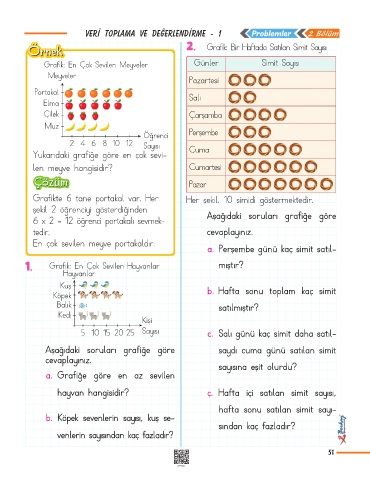 VERİ TOPLAMA VE DEĞERLENDİRME - 1
Problemler
2. Bölüm
Örnek
Grafik: En Çok Sevilen Meyveler
Meyveler
Portakal
Elma
Çilek
Muz
Öğrenci
2 4 6 8 10 12 Sayısı
Yukarıdaki grafiğe göre en çok sevi-
len meyve hangisidir?
Çözüm
Grafikte 6 tane portakal var. Her
şekil 2 öğrenciyi gösterdiğinden
6 x 2 = 12 öğrenci portakalı sevmek-
tedir.
En çok sevilen meyve portakaldır.
1. Grafik: En Çok Sevilen Hayvanlar
Hayvanlar
Kuş
Köpek
Balık
Kedi
Kişi
5 10 15 20 25 Sayısı
Aşağıdaki soruları grafiğe göre
cevaplayınız.
a. Grafiğe göre en az sevilen
hayvan hangisidir?
b. Köpek sevenlerin sayısı, kuş se-
venlerin sayısından kaç fazladır?
2. Grafik: Bir Haftada Satılan Simit Sayısı
Günler Simit Sayısı
Pazartesi
Salı
Çarşamba
Perşembe
Cuma
Cumartesi
Pazar
Her şekil, 10 simidi göstermektedir.
Aşağıdaki soruları grafiğe göre
cevaplayınız.
a. Perşembe günü kaç simit satıl-
mıştır?
b. Hafta sonu toplam kaç simit
satılmıştır?
c. Salı günü kaç simit daha satıl-
saydı cuma günü satılan simit
sayısına eşit olurdu?
ç. Hafta içi satılan simit sayısı,
hafta sonu satılan simit sayı-
sından kaç fazladır?